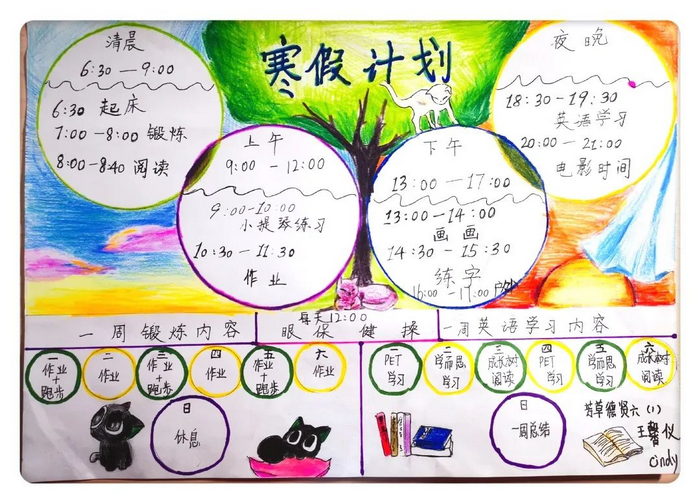 寒假计划
清晨
6:30—9:00
6:30 起床
7:00-8:00 锻炼
8:00-8:40 阅读
上午
9:00-12:00
9:00-10:00
小提琴练习
10:30-11:30
作业
下午
13:00-17:00
13:00-14:00
画画
14:30-15:30
练字
16:00-17:00
夜晚
18:30-19:30
英语学习
20:00-21:00
电影时间
一周锻炼内容
每天12:00
眼保健操
一周英语学习内容
一
作业
+
跑步
二
作业
三
作业
+
跑步
四
作业
五
作业
+
跑步
六
作业
日
休息
一
PET
学习
二
学而思
学习
三
成长树
阅读
四
PET
学习
五
学而思
学习
六
成长树
阅读
日
一周总结
芳草德贤六(1)
王馨仪
cindy